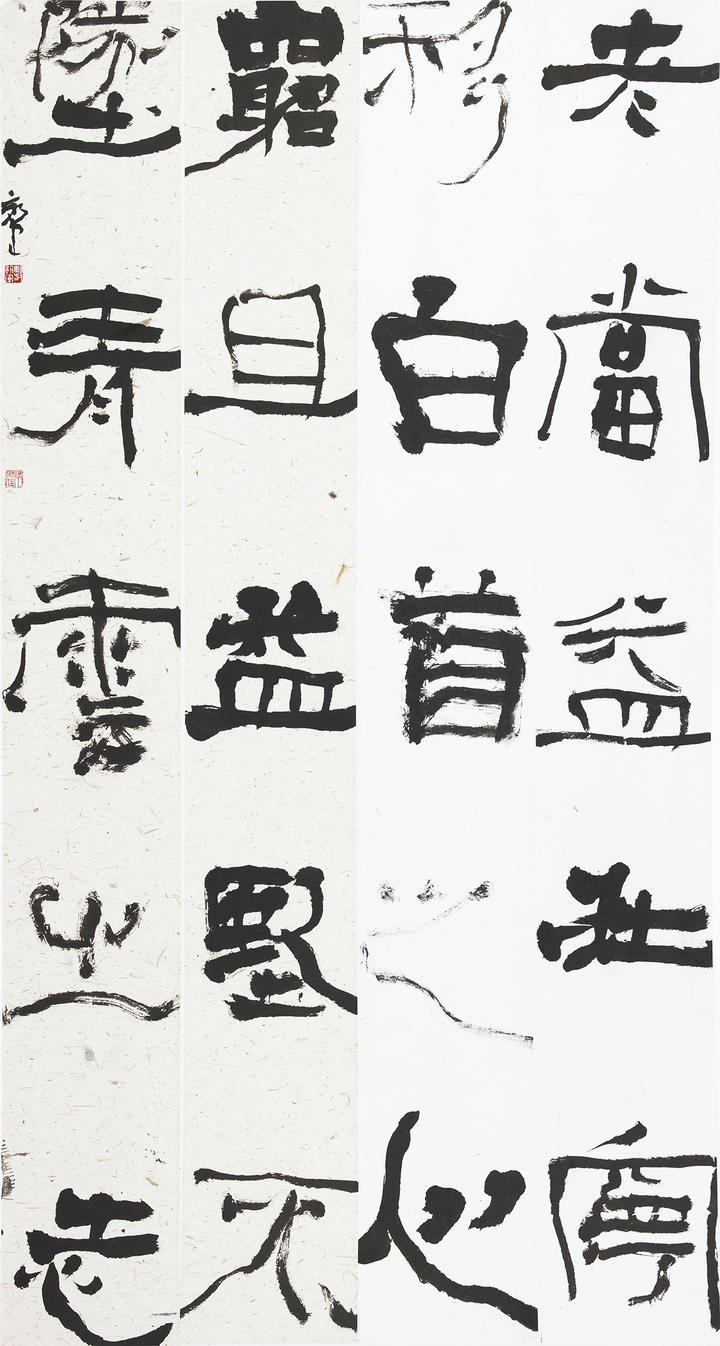 老當益壯寧
移白首之心
窮且益堅不
墜青雲之志